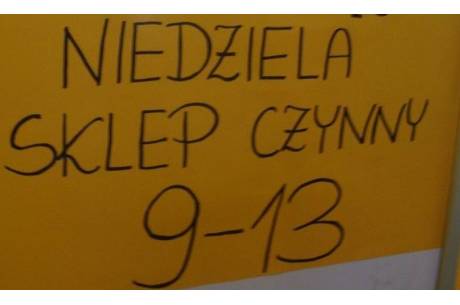 NIEDZIELA
SKLEP CZYNNY
9-13